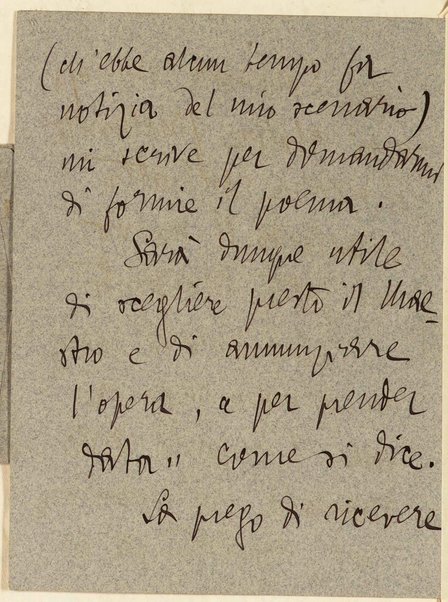 (ch'ebbe alcun tempo fa
notizia del mio scenario)
mi scrive per domandarmi
di fornire il poema.
Sarà dunque utile
di scegliere presto il Mae-
stro e di annunziare
l'opera, a per prender
data„ come si dice.
La prego di ricevere